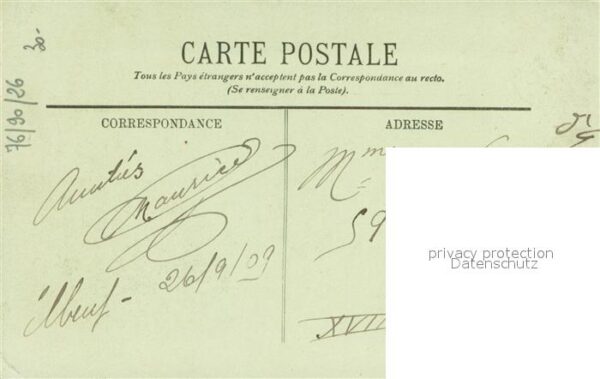 CARTE POSTALE
Tous les Pays étrangers n'acceptent pas la Correspondance au recto.
(Se renseigner à la Poste).
CORRESPONDANCE
ADRESSE
Amitiés
Maurice
Elbeuf - 26/9/09
Mme
59
XVII
76/90/26
30-
privacy protection
Datenschutz